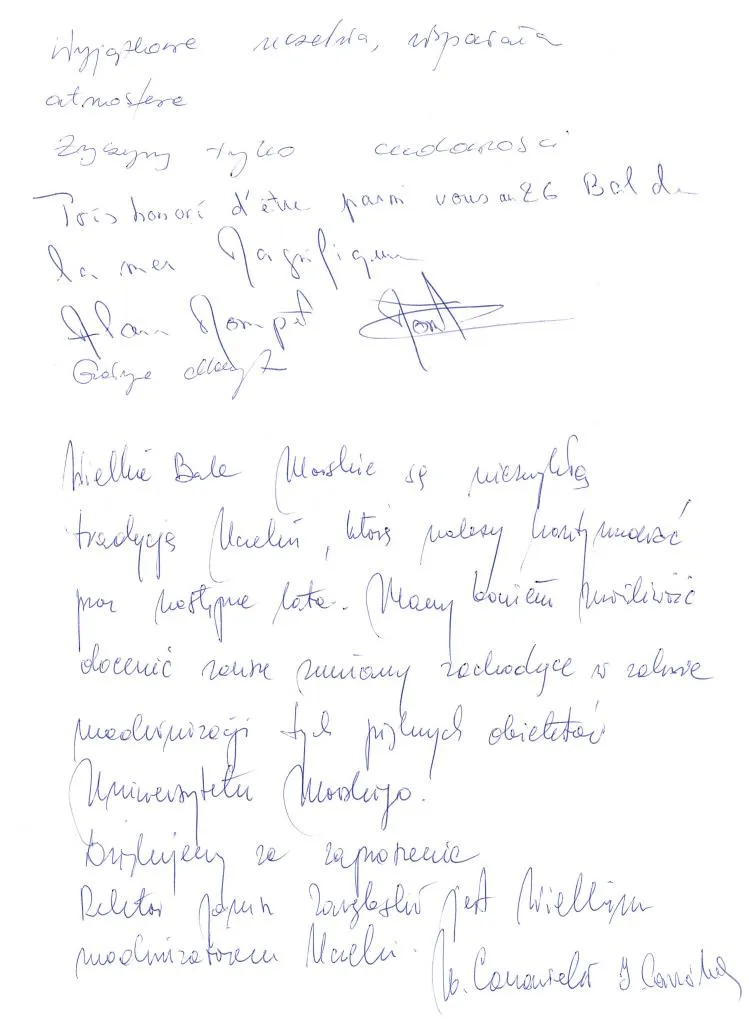 Wyjątkowa uczelnia, wspaniała
atmosfera
Życzymy tylko
Très honoré d'être parmi vous au 26 Bal de
la mer Magnifique
Alain Mompert
Wielkie Bale Morskie są niezwykłą
tradycją Uczelni, którą należy kontynuować
przez następne lata. Mamy bowiem możliwość
docenić zawsze zmiany zachodzące w zakresie
modernizacji tych pięknych obiektów
Uniwersytetu Morskiego.
Dziękujemy za zaproszenie
Rektor Janusz Zarębski jest Wielkim
modernizatorem Uczelni.